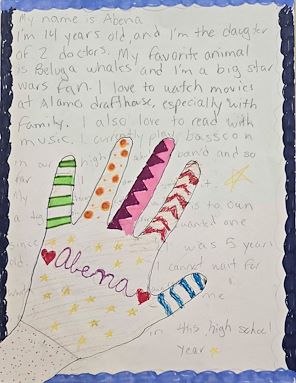 My name is Abena
I'm 14 years old, and I'm the daughter
of 2 doctors. My favorite animal
is Beluga whales and I'm a big star
wars fan. I love to watch movies
at Alamo drafthouse, especially with
family. I also love to read with
music. I currently play bassoon
in our high band and so
far
is to own
a dog wanted one
since was 5 years
old I cannot wait for
me
in this high school
year
Abena